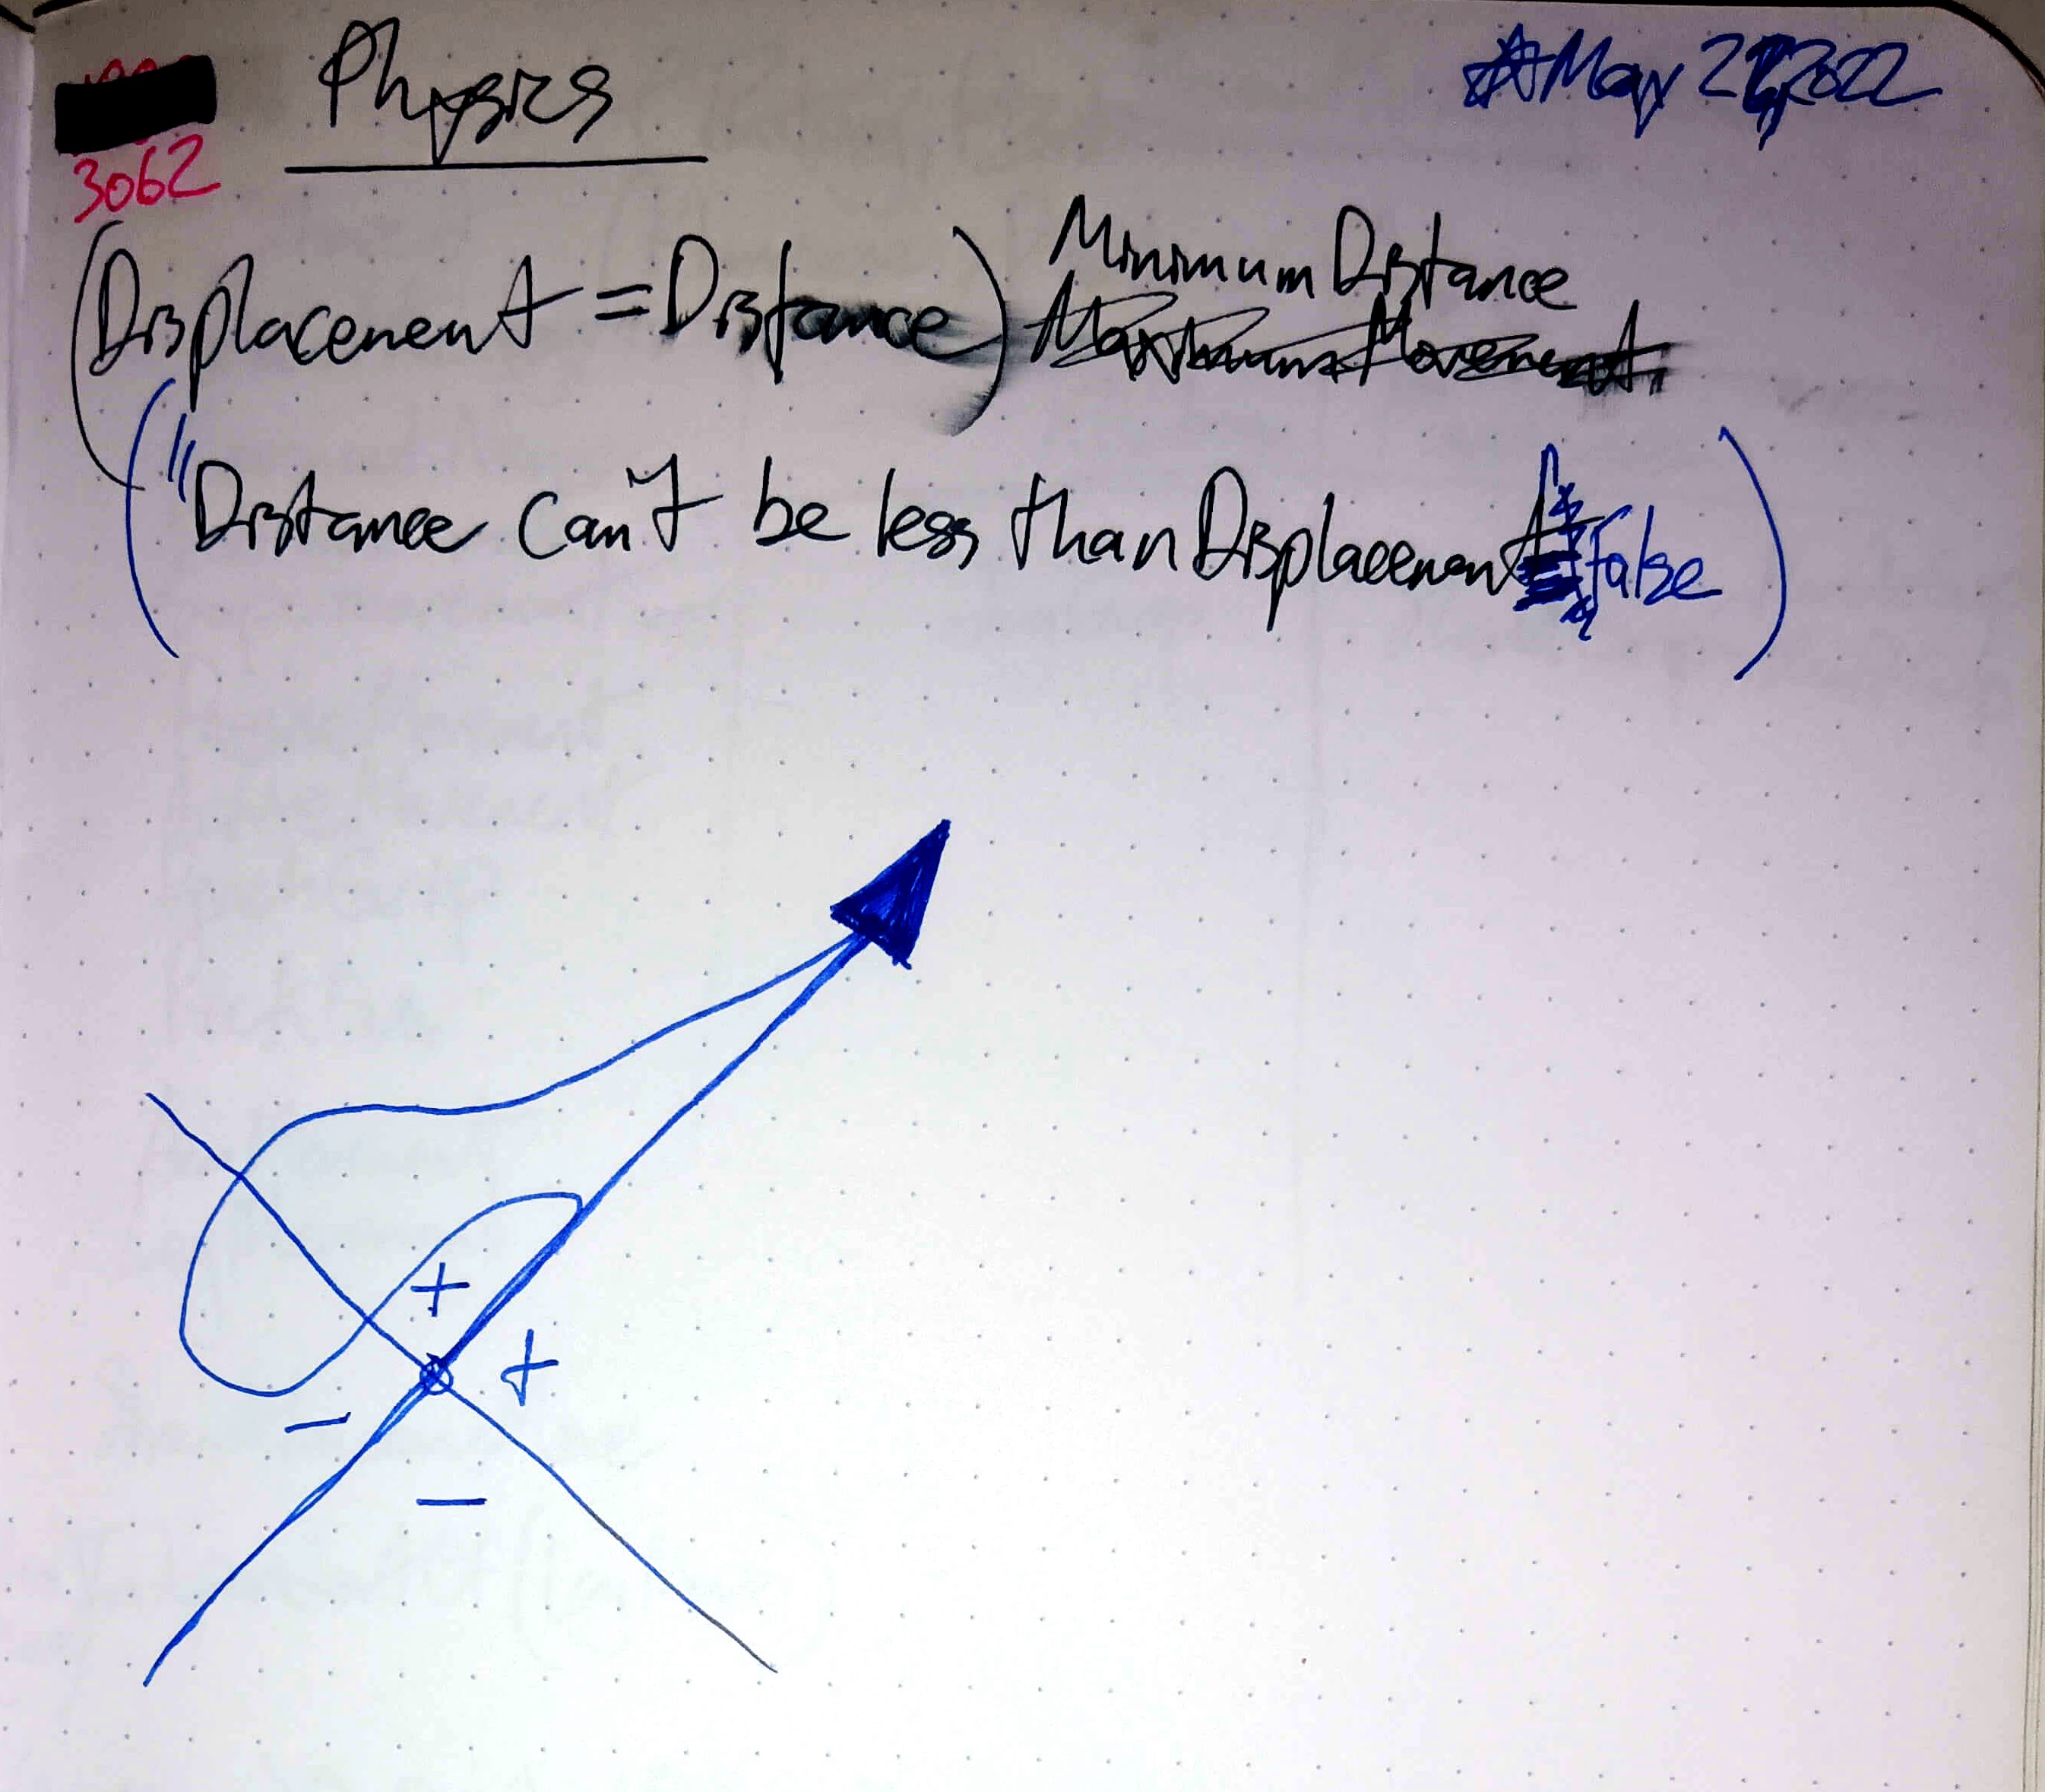 Physics
3062
(Displacement = Distance) Minimum Distance
Maximum Movement
("Distance can't be less than Displacement" False)
+
+
-
-